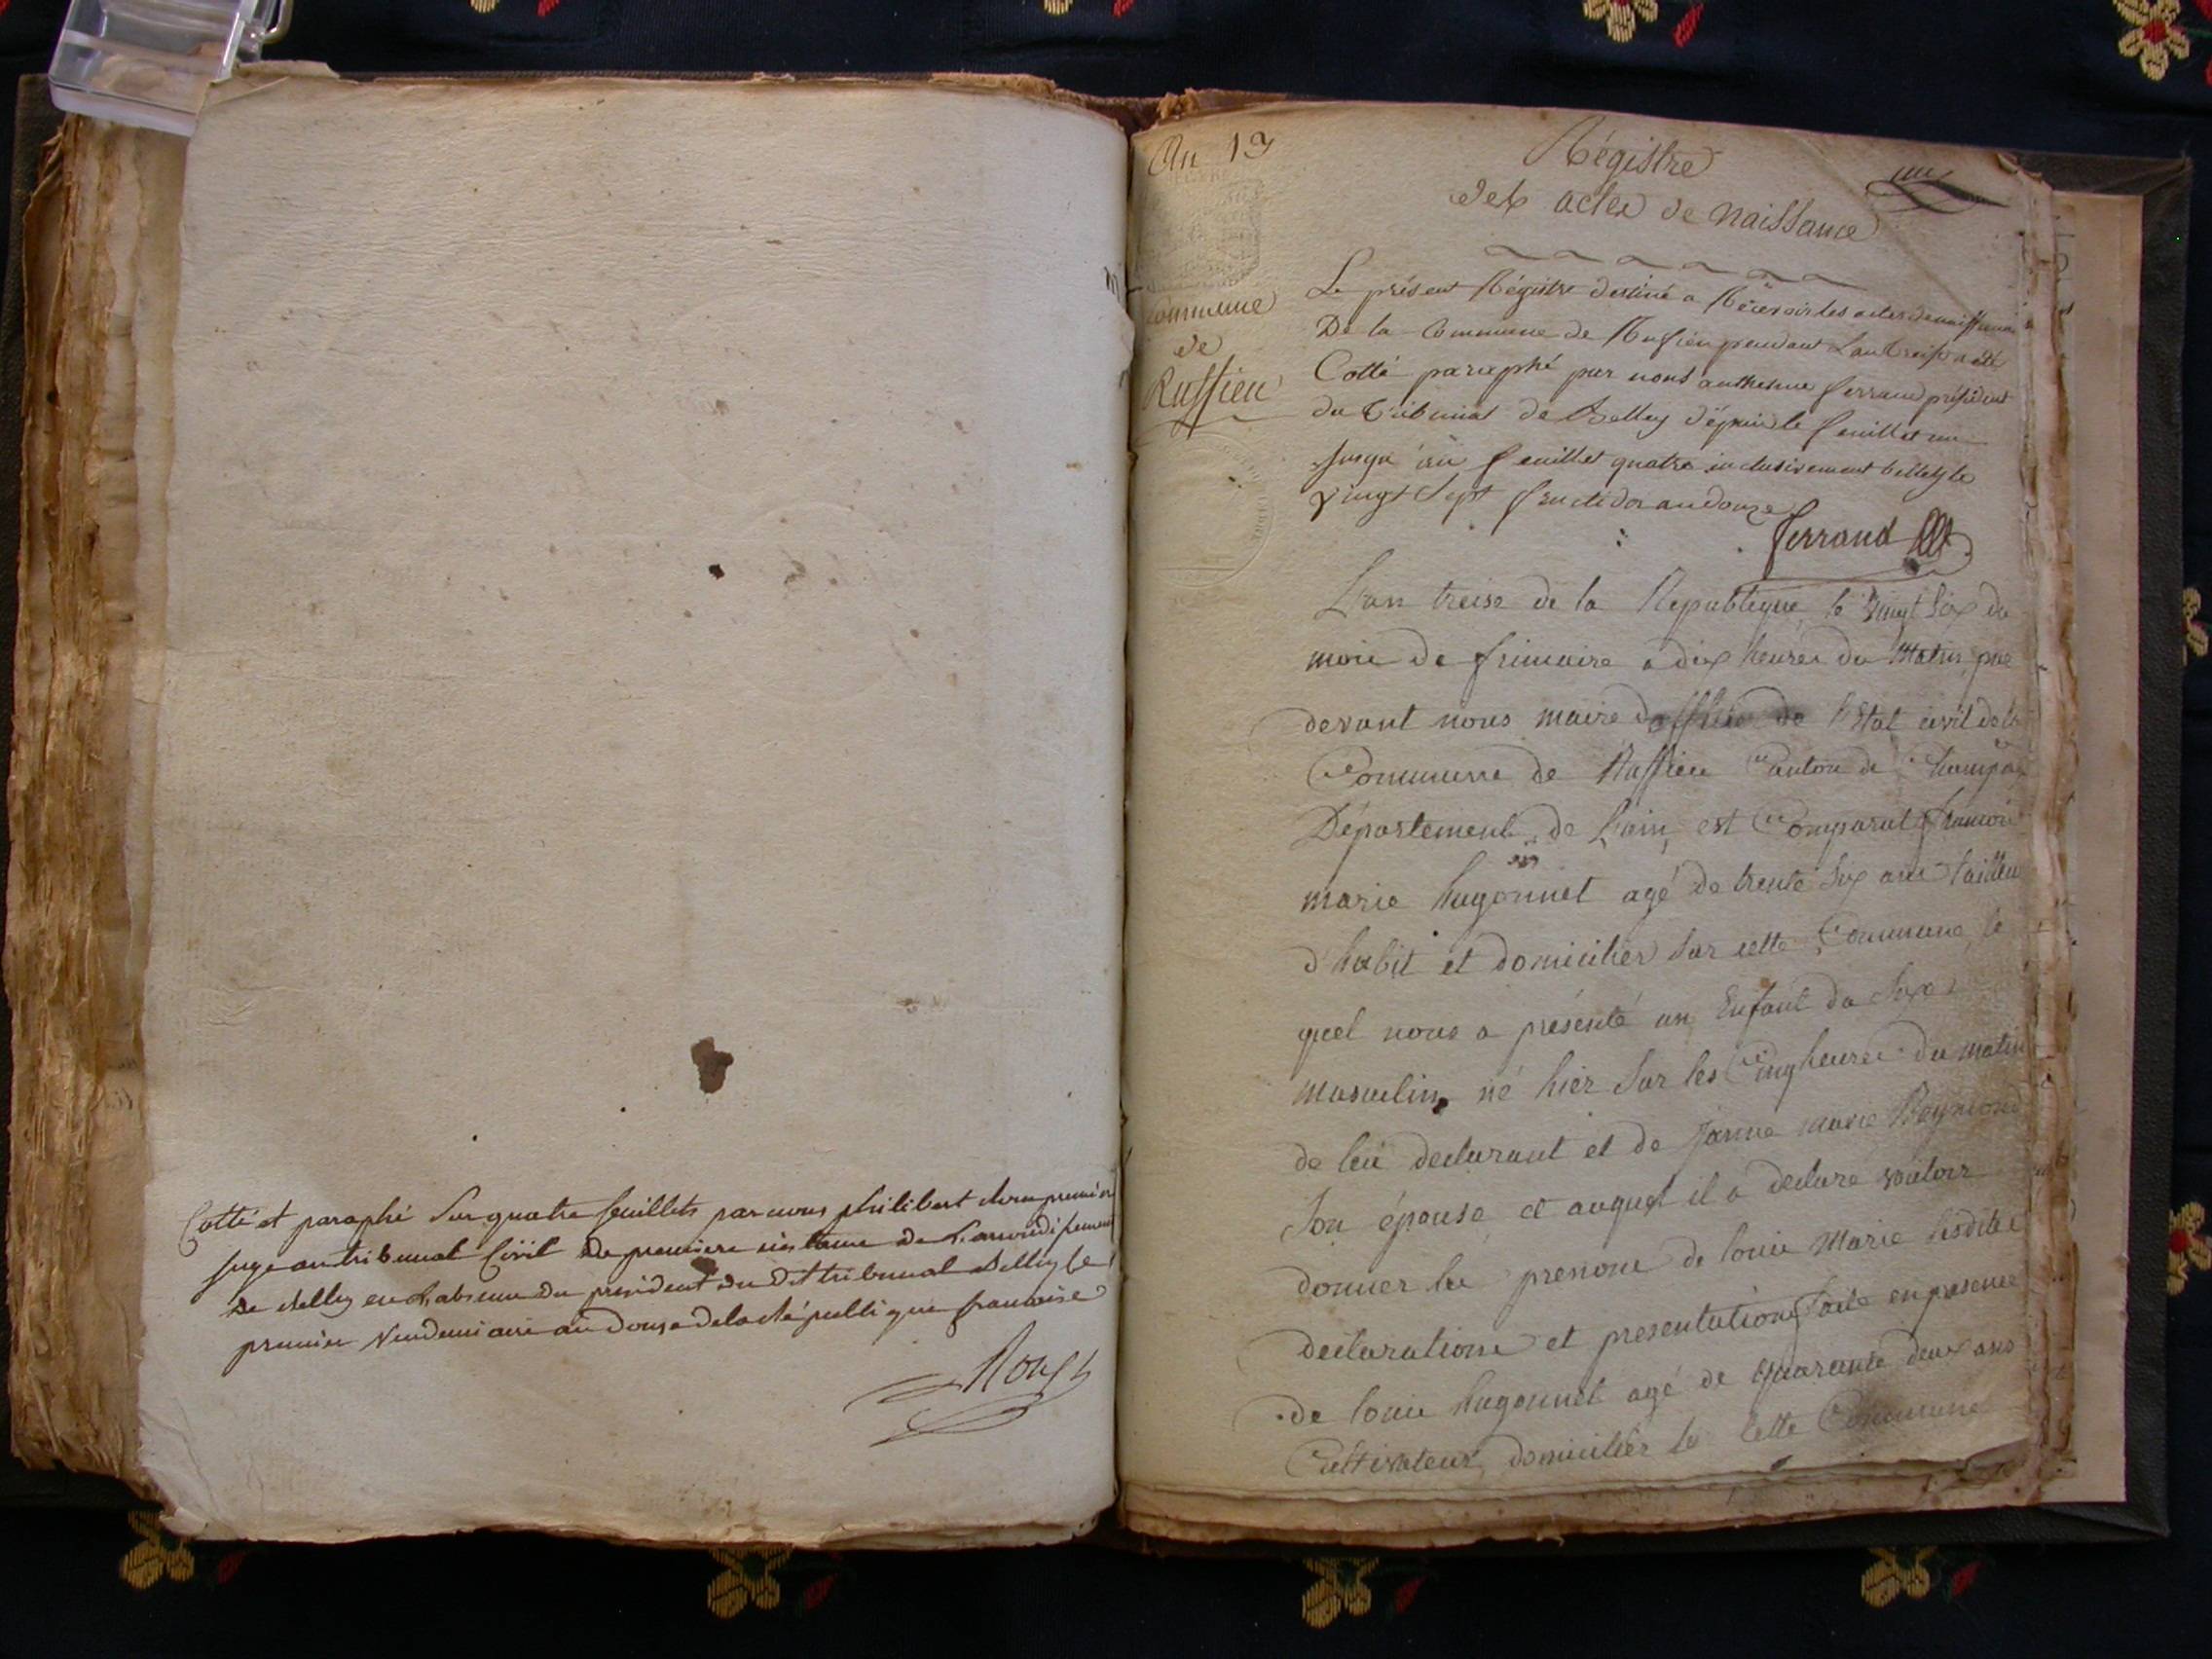 Cotté et paraphé Sur quatre feuillets par nous philibert premier
juge au tribunal Civil De premiere instance De L'arrondissement
De Belley en L'absence Du president Du Dit tribunal Belley le
premier Vendemiaire an Douze de la République francaise
Rouy
An 13
Régistre
des actes de Naissance
Commune
de
Ruffieu
Le présent Régistre destiné a Recevoir les actes de naissance
De la Commune de Ruffieu pendant L'an treize a été
Cotté paraphé par nous anthelme ferrand président
du Tribunal de Belley dépuis le feuillet un
jusqu'au feuillet quatre inclusivement belley le
vingt Sept fructidor an douze
ferrand
L'an treise de la Republique, le vingt Six du
mois de frimaire a dix heures du Matin, par
devant nous maire de L'Etat civil de la
Commune de Ruffieu Canton de Champag
Département de L'ain, est Comparut francois
marie hugonnet agé de trente Six ans tailleur
d'habit et domicilier Sur cette Commune, le
quel nous a présenté un Enfant du Sexe
masculin, né hier Sur les Cinq heures du matin
de lui declarant et de Janne Marie Reymond
Son épouse et auquel il a declare vouloir
donner les prenoms de louis Marie lesdites
declarations et presentations faite en presence
de louis hugonnet agé de quarante deux ans
Cultivateur, domicilier de Cette Commune